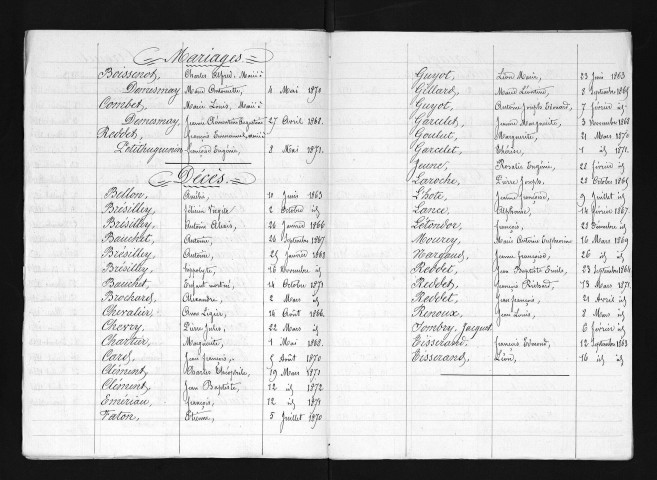 Mariages
Boissenot, Charles Alfred, Marié à
Domesmay Marie Antoinette, 4 Mai 1870
Combet, Marie Louis, Marié à
Domesmay, Jeanne Clémentine Augustine 27 Avril 1868.
Reddet, François Emmanuel, marié à
Petithuguenin François Eugénie, 8 Mai 1871.
Décès.
Bellon, 10 Juin 1863
Brésilley, 2 Octobre id
Brésilley, Antoine Alexis, 26 Janvier 1866
Bauchet, Antoine, 26 Septembre 1867.
Brésilley, Antoine, 25 Janvier 1868
Brésilley, Hippolyte, 16 Novembre id
Bauchet, Enfant mort né, 14 Octobre 1871
Brochard, Alexandre, 2 Mars id
Chevalier, Ligier, 14 Août 1866.
Chevry, Pierre Jules, 22 Mars id
Chartier, Marguerite, 1 Mai 1868.
Carel, Jean François, 5 Août 1870
Clément, Charles Théophile, 19 Mars 1871
Clément, Jean Baptiste, 12 id 1872
Emériau, François, 12 id 1871
Faton, Etienne, 5 Juillet 1870.
Guyot, Léon Marie, 23 Juin 1863
Gillard, Marie Léontine, 8 Septembre 1865
Guyot, Antoine Joseph Edouard, 7 Février id
Garculet, Jeanne Marguerite, 3 Novembre 1868
Goulut, Marguerite, 21 Mars 1870
Garcelet, 1 id 1871.
Jeune, Rosalie Eugénie, 28 Février id
Laroche, Pierre Joseph, 28 Octobre 1865
L'hote, Jeanne Françoise, 9 Juillet id
Lance, Alphonse, 14 Février 1867.
Létondor, François, 28 Décembre id
Mourey, Marie Antoine Euphrosine 16 Mars 1869
Nargaud, Jeanne Françoise, 26 id id
Reddet, Jean Baptiste Emile, 23 Septembre 1864
Reddet, François Richard, 13 Mars 1871.
Reddet, Jean François, 21 Avril id
Renoux, Jean Louis, 8 Mars id
Jacques 6 Février id
Tisserand, François Edmond, 12 Septembre 1863
Tisserand, Léon, 16 id id